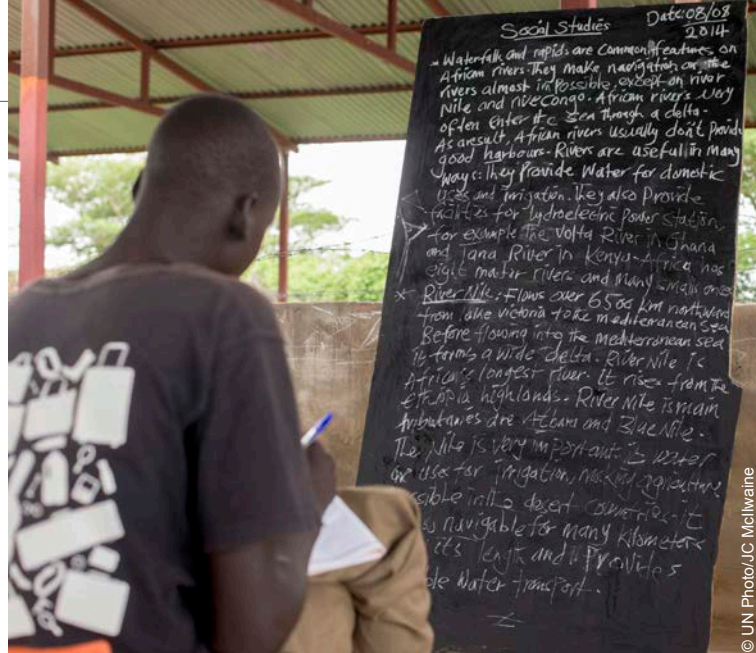 Social Studies
Date: 08/08
2014
Waterfalls and rapids are common features on
African rivers. They make navigation on the
rivers almost impossible, except on river
Nile and rivecongo. African rivers very
often enter the sea through a delta.
As aresult, African rivers usually don't provide
good harbours. Rivers are useful in many
ways: They Provide water for domestic
uses and irrigation. They also Provide
facilities for hydroelectric Power station
for example the Volta River in Ghana
and Tana River in Kenya. Africa has
eight major rivers and many small ones
* River Nile: Flows over 6500 km northward
from lake victoria to the mediterranean Sea
Before flowing into the mediterranean sea
it forms a wide delta. River Nile is
Africa's longest river. It rises from the
ethiopia highlands. River Nile is main
tributaries are Atbara and Blue Nile.
The Nile is very important is water
uses for irrigation, making agriculture
in the desert countries. it
navigable for many kilometers
its length and it Provides
water transport.
© UN Photo/JC McIlwaine